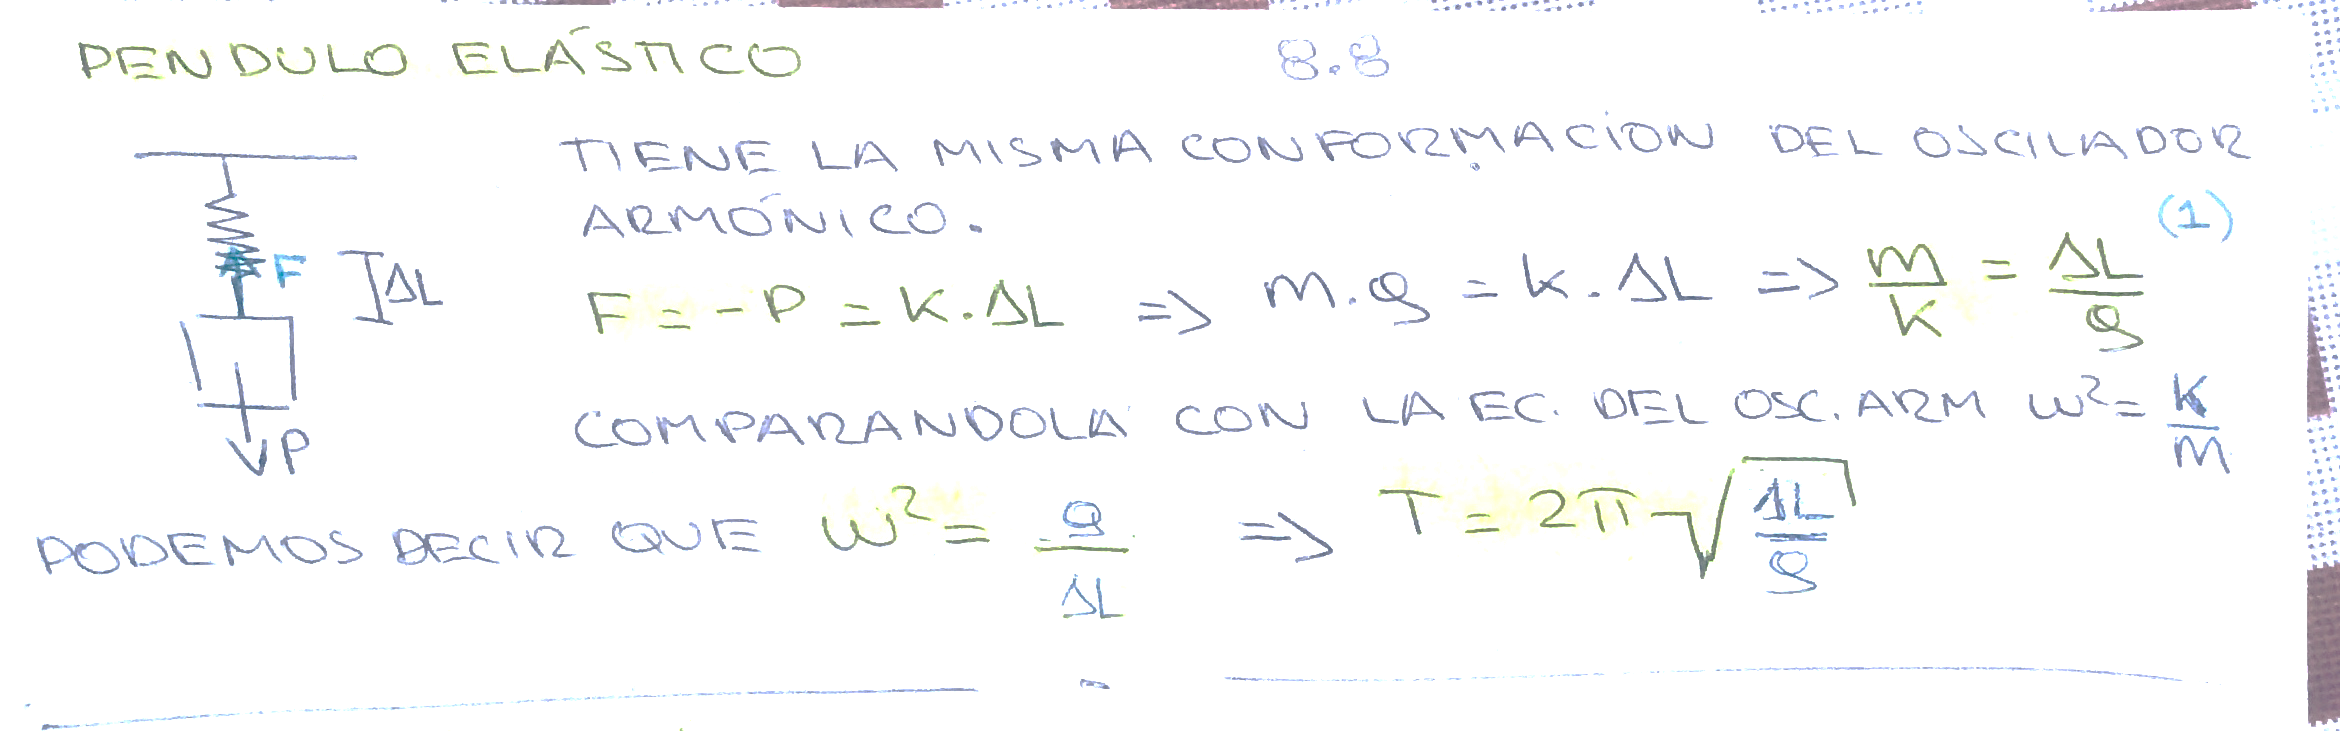 PENDULO ELÁSTICO 8.8
TIENE LA MISMA CONFORMACION DEL OSCILADOR
ARMÓNICO.
(1)
F ΔL
F = -P = K.ΔL => m.g = k.ΔL => m/k = ΔL/g
COMPARANDOLA CON LA EC. DEL OSC. ARM ω² = K/m
P
PODEMOS DECIR QUE ω² = g/ΔL => T = 2π√(ΔL/g)